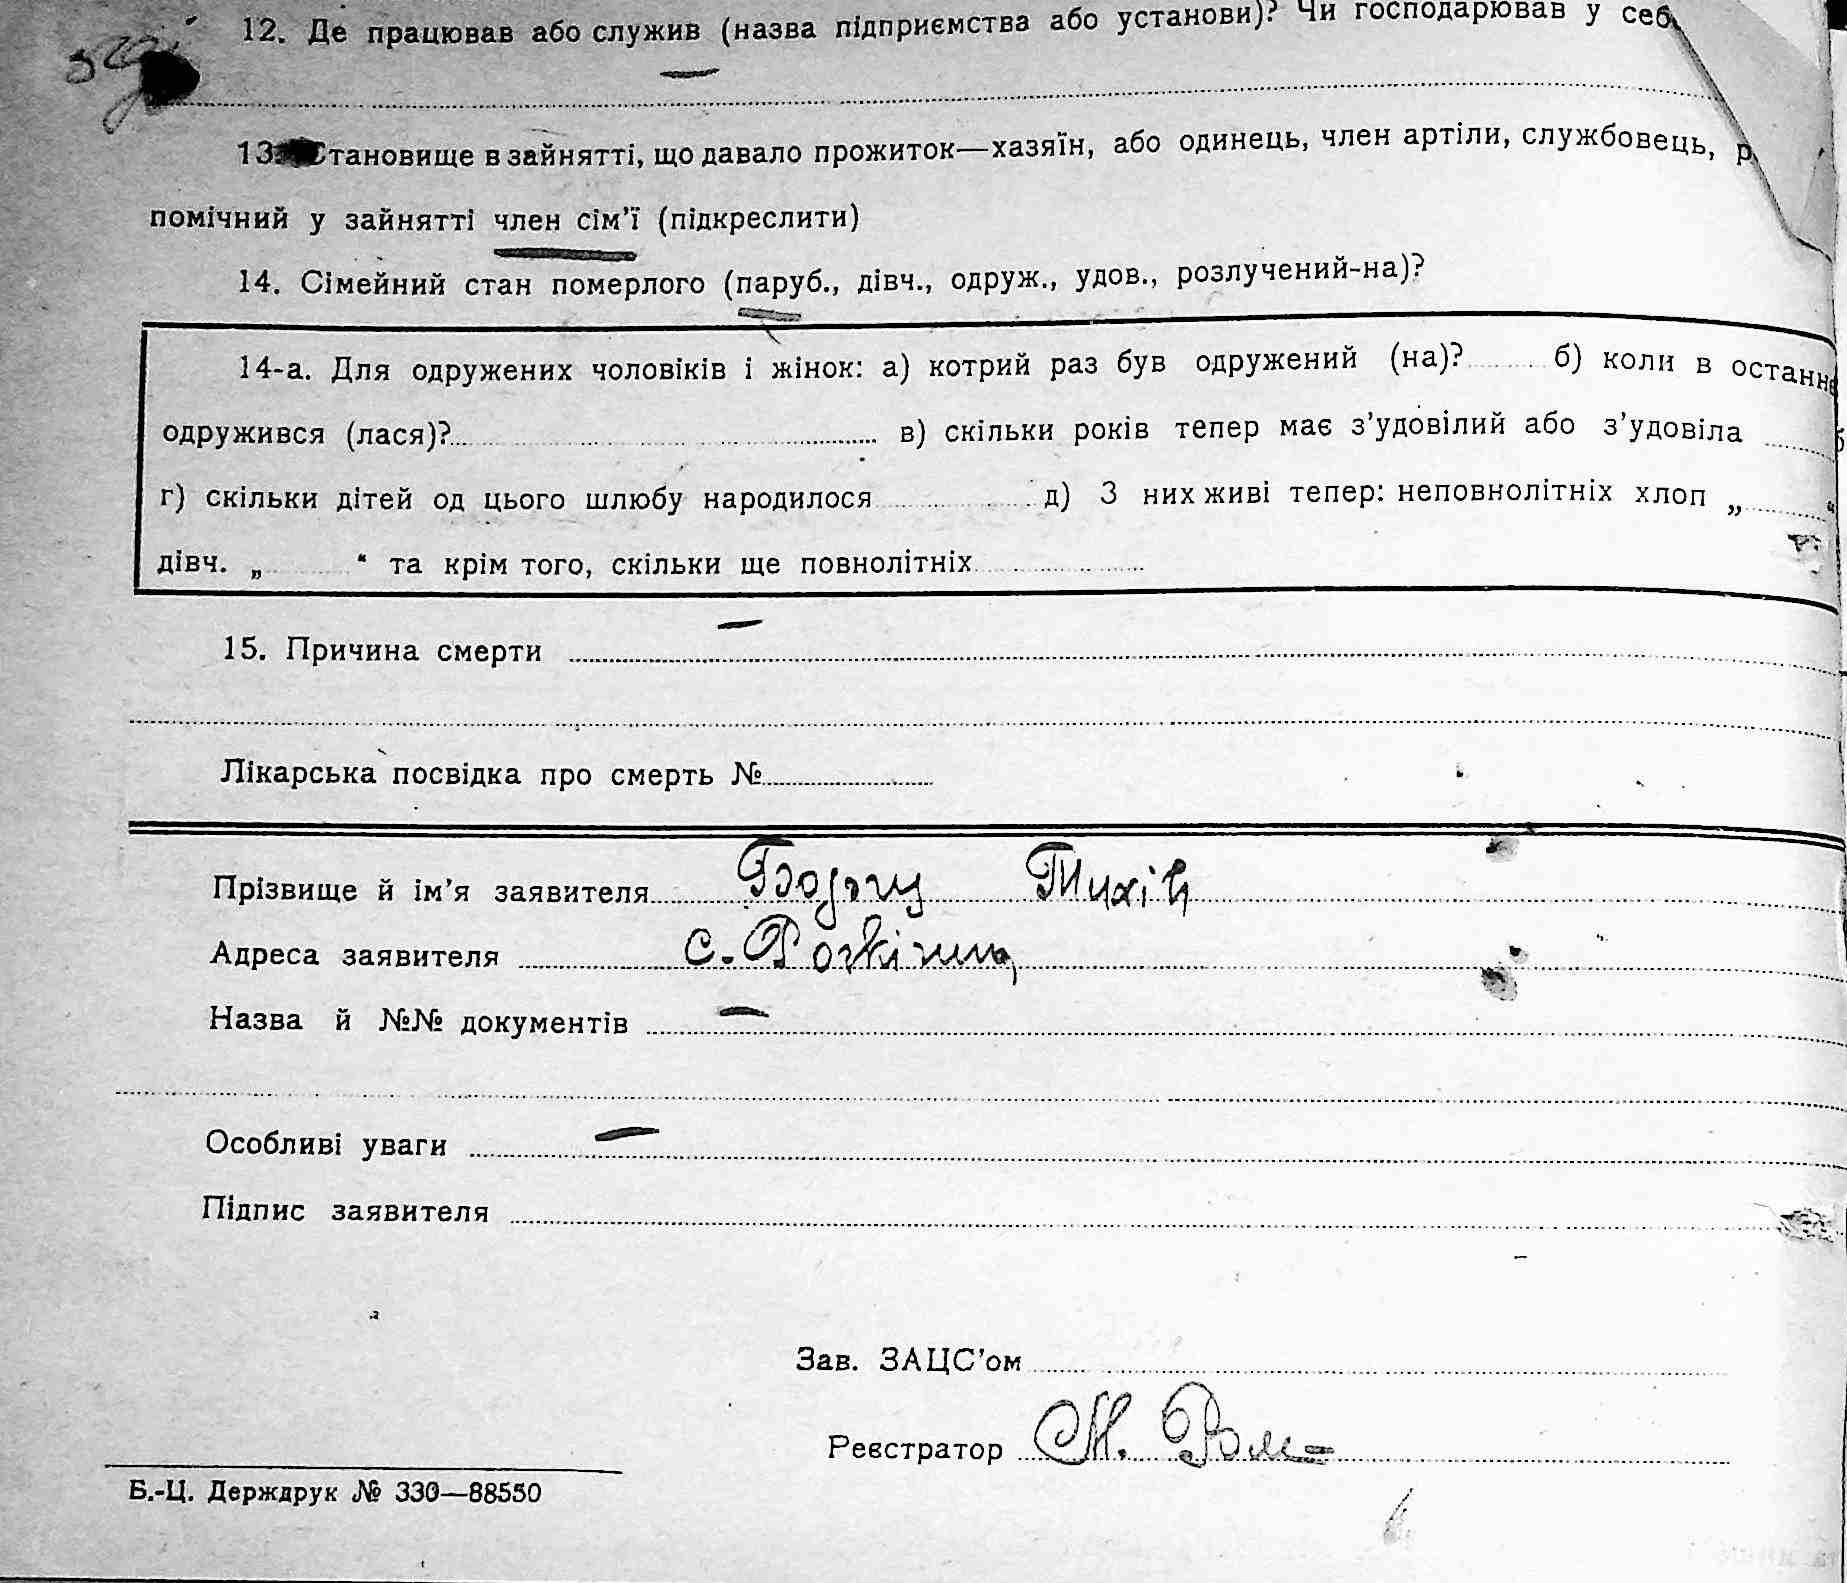 12. Де працював або служив (назва підприємства або установи)? Чи господарював у себ
—
13. Становище в зайнятті, що давало прожиток—хазяїн, або одинець, член артіли, службовець, р
помічний у зайнятті член сім’ї (підкреслити)
14. Сімейний стан померлого (паруб., дівч., одруж., удов., розлучений-на)?
14-а. Для одружених чоловіків і жінок: а) котрий раз був одружений (на)? б) коли в останнє
одружився (лася)? в) скільки років тепер має з’удовілий або з’удовіла
г) скільки дітей од цього шлюбу народилося д) З них живі тепер: неповнолітніх хлоп „ “
дівч. „ “ та крім того, скільки ще повнолітніх
15. Причина смерти —
Лікарська посвідка про смерть №
Прізвище й ім’я заявителя
Адреса заявителя с.
Назва й №№ документів —
Особливі уваги —
Підпис заявителя
Зав. ЗАЦС’ом
Реєстратор М.
Б.-Ц. Держдрук № 330—88550